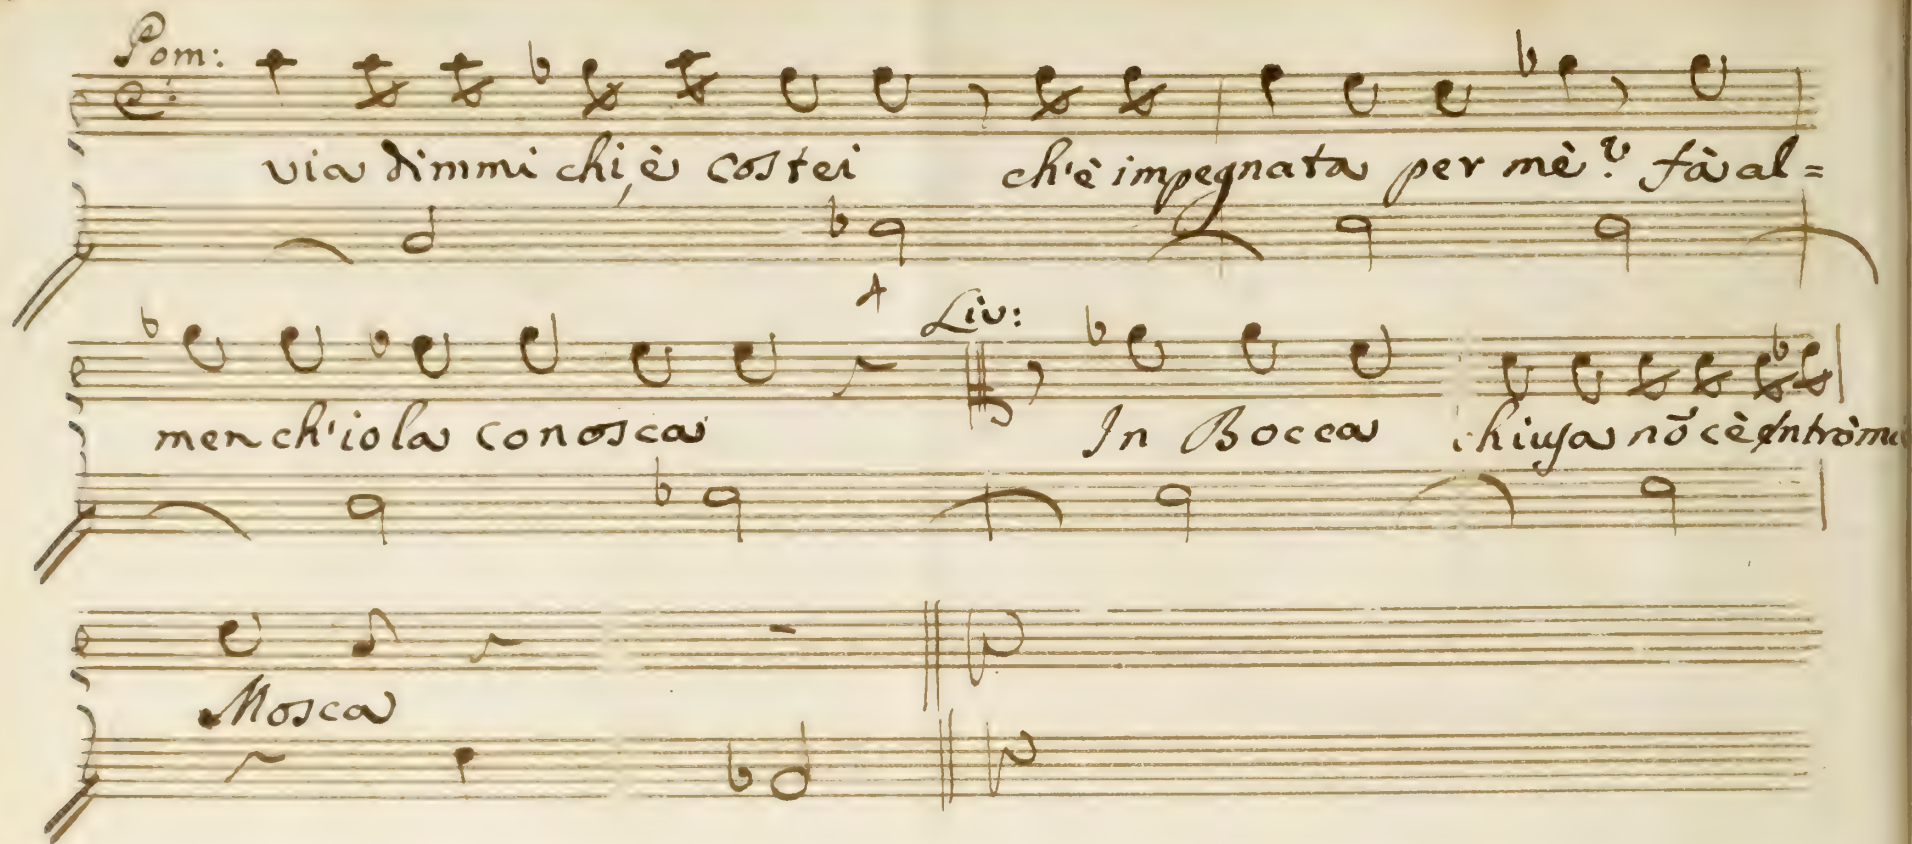 Pom:
via dimmi chi è costei ch'è impegnata per mè? fà al=
4
Liv:
men ch'io la conosca In Bocca chiusa nõ c'è entrò
Mosca